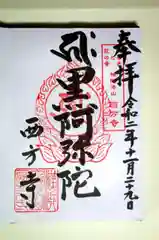 奉拝
令和二年十一月二十九日
黒阿弥陀
西方寺